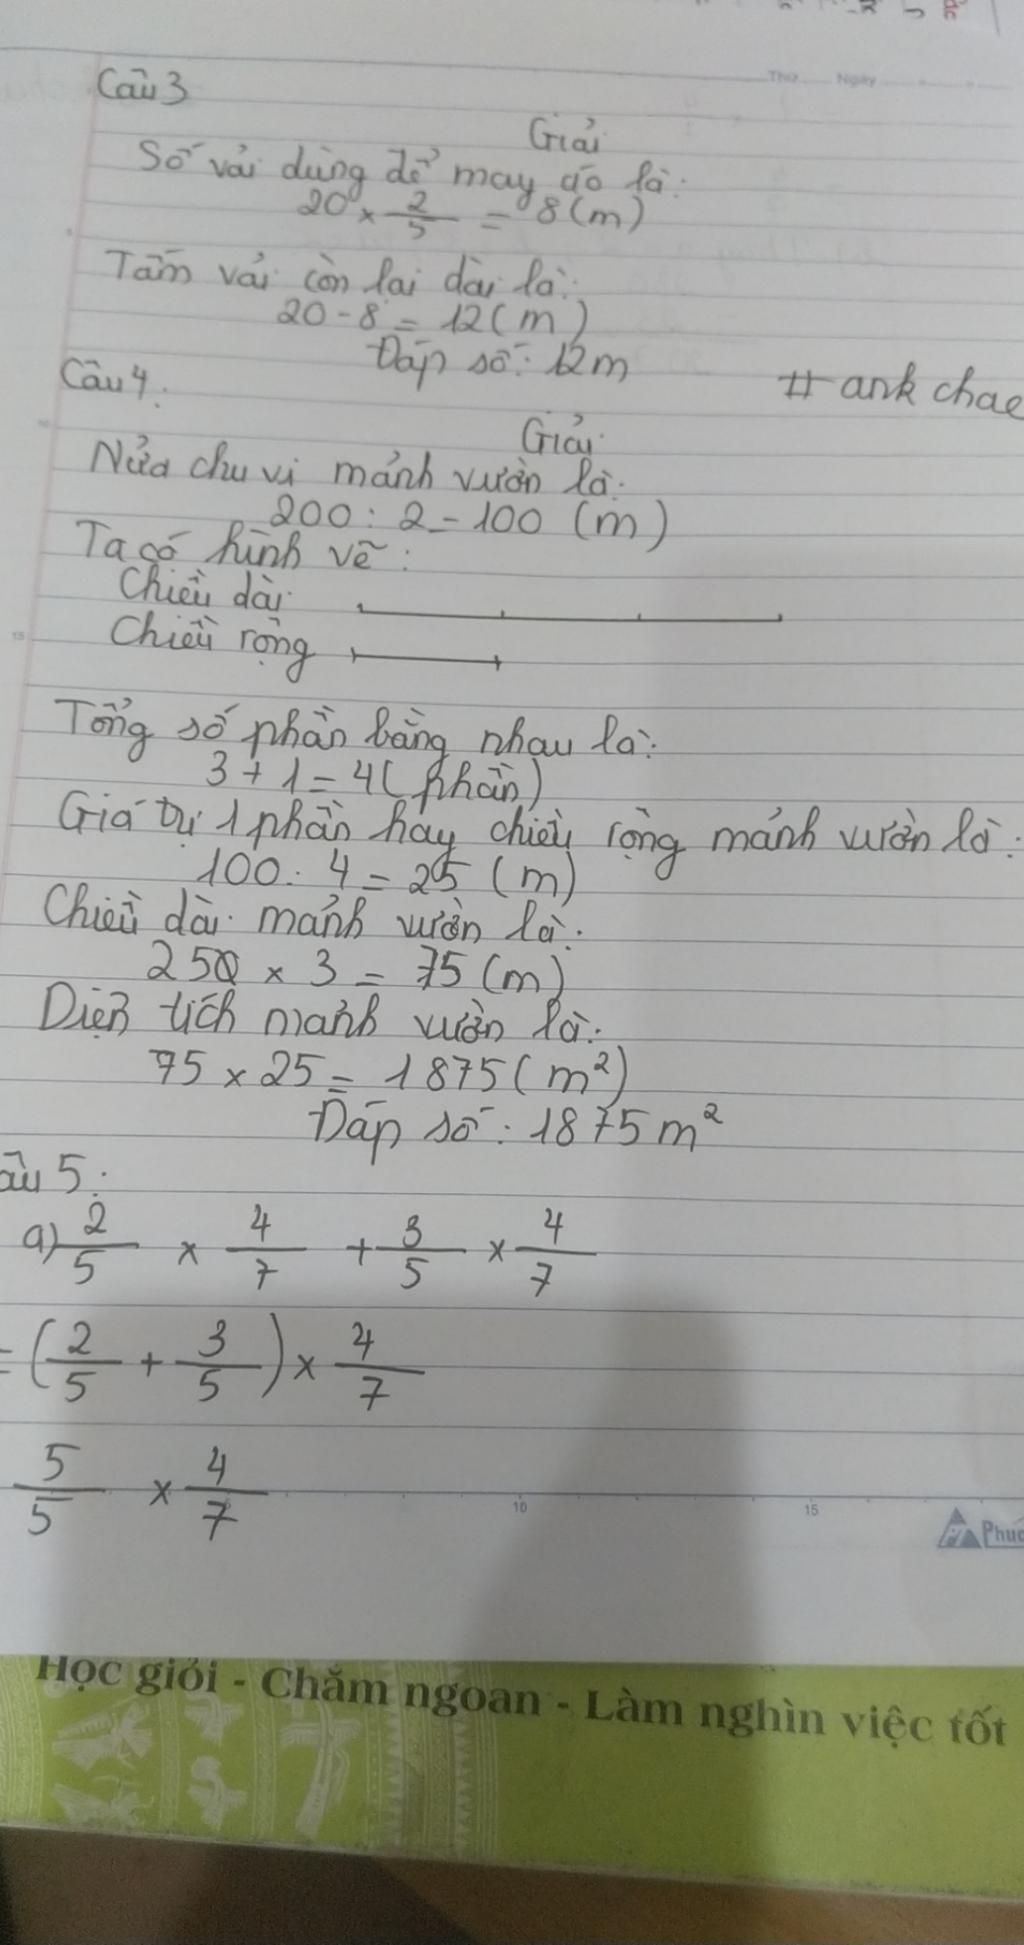 Thứ Ngày
Câu 3
Giải
Số vải dùng để may áo là:
20 × 2/5 = 8 (m)
Tấm vải còn lại dài là:
20 - 8 = 12 (m)
Đáp số: 12m
Câu 4:
# ank chae
Giải
Nửa chu vi mảnh vườn là:
200 : 2 = 100 (m)
Ta có hình vẽ:
Chiều dài
Chiều rộng
15
Tổng số phần bằng nhau là:
3 + 1 = 4 (phần)
Giá trị 1 phần hay chiều rộng mảnh vườn là:
100 : 4 = 25 (m)
Chiều dài mảnh vườn là:
25 × 3 = 75 (m)
Diện tích mảnh vườn là:
75 × 25 = 1875 (m²)
Đáp số: 1875 m²
âu 5:
a) 2/5 × 4/7 + 3/5 × 4/7
= (2/5 + 3/5) × 4/7
5/5 × 4/7
10 15
Phúc
Học giỏi - Chăm ngoan - Làm nghìn việc tốt